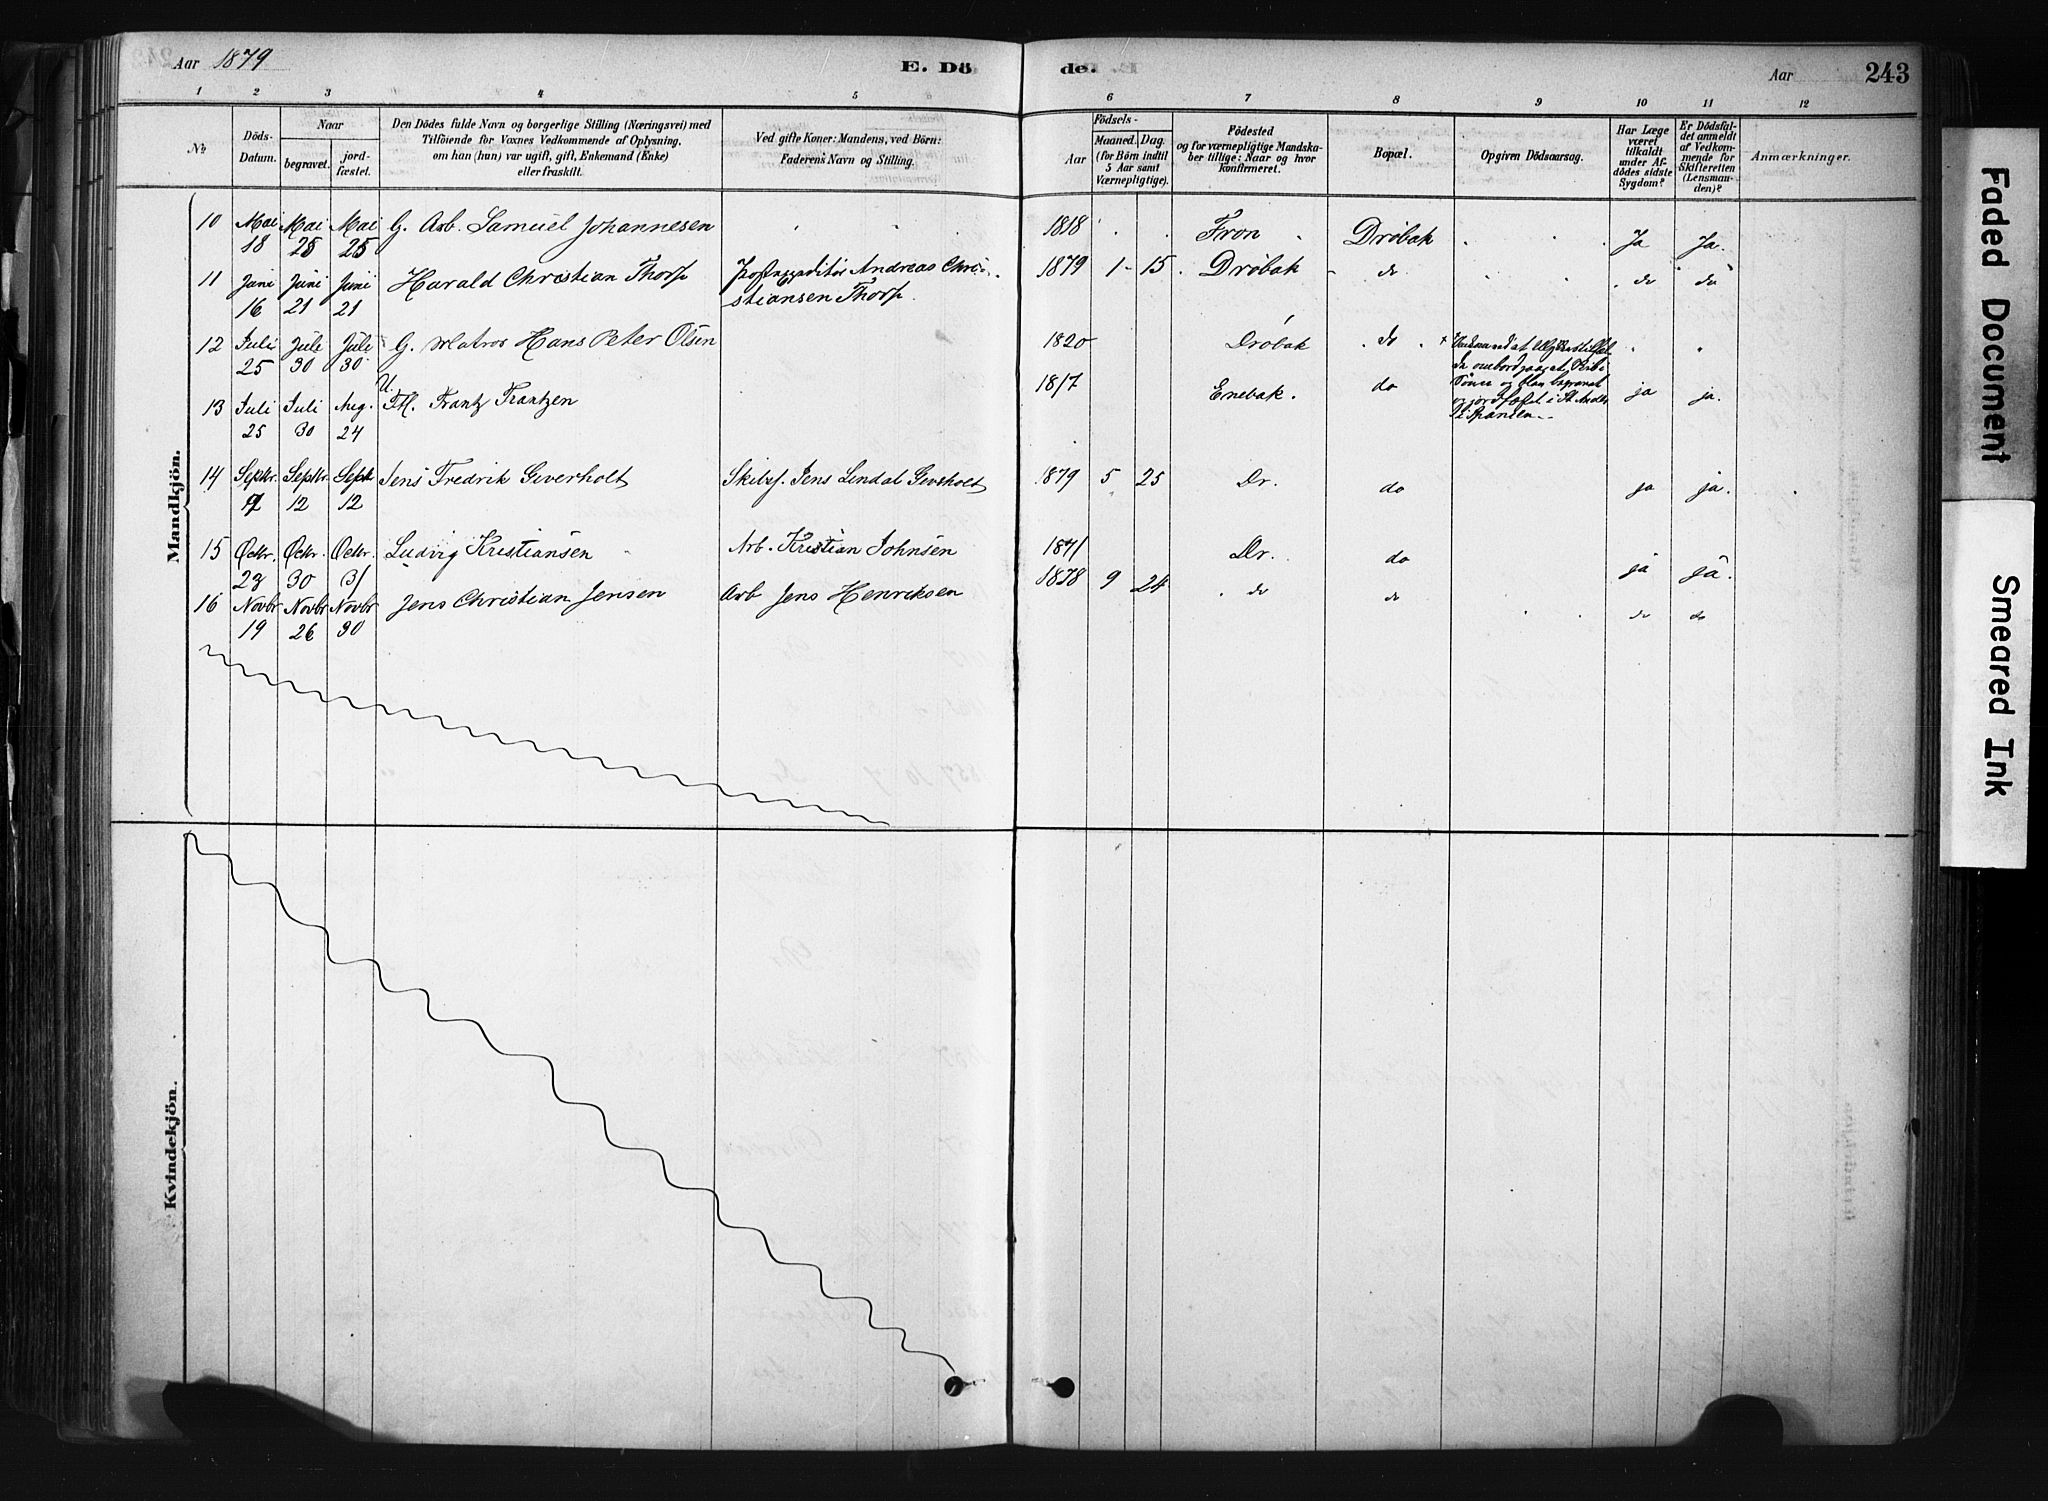 Aar 1879
E. Dö
de.
Aar
243
1 2 3 4 5 6 7 8 9 10 11 12
№
Döds-
Datum.
Naar
begravet.
jord-
fæstet.
Den Dödes fulde Navn og borgerlige Stilling (Næringsvei) med
Tilföiende for Voxnes Vedkommende af Oplysning,
om han (hun) var ugift, gift, Enkemand (Enke)
eller fraskilt.
Ved gifte Koner: Mandens, ved Börn:
Faderens Navn og Stilling.
Födsels-
Aar
Maaned. Dag.
(for Börn indtil
5 Aar samt
Værnepligtige).
Födested
og for værnepligtige Mandska-
ber tillige: Naar og hvor
konfirmeret.
Bopæl.
Opgiven Dödsaarsag.
Har Læge
været
tilkaldt
under Af-
dödes sidste
Sygdom?
Er Dödsfal-
det anmeldt
af Vedkom-
mende for
Skifteretten
(Lensman-
den)?
Anmærkninger.
Mandkjön.
10 Mai Mai Mai G. Arb. Samuel Johannesen 1818 Fron Drøbak Ja Ja.
18 25 25
11 Juni Juni Juni Harald Christian Thorp Postexpeditør Andreas Chri- 1879 1 15 Drøbak do do do
16 21 21 stiansen Thorp.
12 Juli Juli Juli G. Matros Hans Peter Olsen 1820 Drøbak do
25 30 30
13 Juli Juli Aug. U. Frantz Frantzen 1817 Enebak. do ja ja.
25 30 24
14 Septbr. Septbr. Septbr Jens Fredrik Geverholt Skibsf. Jens Lindal Geverholt 1879 5 25 Dr. do ja ja.
9 12 12
15 Octbr. Octbr. Octbr. Ludvig Kristiansen Arb. Kristian Johnsen 1871 Dr. do ja ja.
23 30 31
16 Novbr Novbr Novbr Jens Christian Jensen Arb Jens Henriksen 1878 9 24 do do do do
19 26 30
Kvindekjön.
Faded Document
Smeared Ink